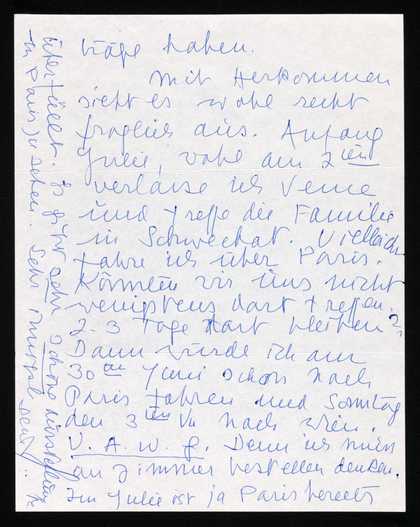 träge haben.
Mit Herkommen
sieht es wohl recht
fraglich aus. Anfang
Juli, wohl am 2ten
verlasse ich Venice
und treffe die Familie
in Schwechat. Vielleicht
fahre ich über Paris.
Könnten wir uns nicht
wenigstens dort treffen &
2-3 Tage dort bleiben?
Dann würde ich am
30ten Juni schon nach
Paris fahren und Sonntag
den 3ten VII nach Wien.
U. A. w. g. Denn ich muss
an Zimmer bestellen denken.
Im Julie ist ja Paris bereits
überfüllt. Es gibt sehr schöne
in Paris zu sehen. Sehr